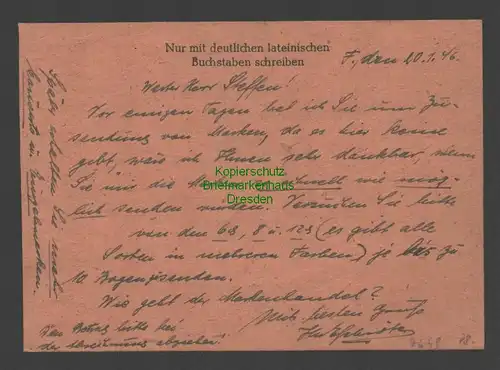 Nur mit deutlichen lateinischen
Buchstaben schreiben
F., den 20.1.46.
Werter Herr Steffen!
Vor einigen Tagen bat ich Sie um Zu-
sendung von Marken, da es hier keine
gibt, wäre ich Ihnen sehr dankbar, wenn
Sie uns die Marken so schnell wie mög-
lich senden würden. Versuchen Sie, bitte
von den 6₰, 8 u. 12₰ (es gibt alle
Sorten in mehreren Farben) je bis zu
10 Bogen zusenden.
Wie geht der Markenhandel?
Mit besten Gruß
Den Betrag bitte bei
der Abrechnung abziehen!
Später erhalten Sie mehr
u. Einzelmarken.
Kopierschutz
Briefmarkenhaus
Dresden
18.